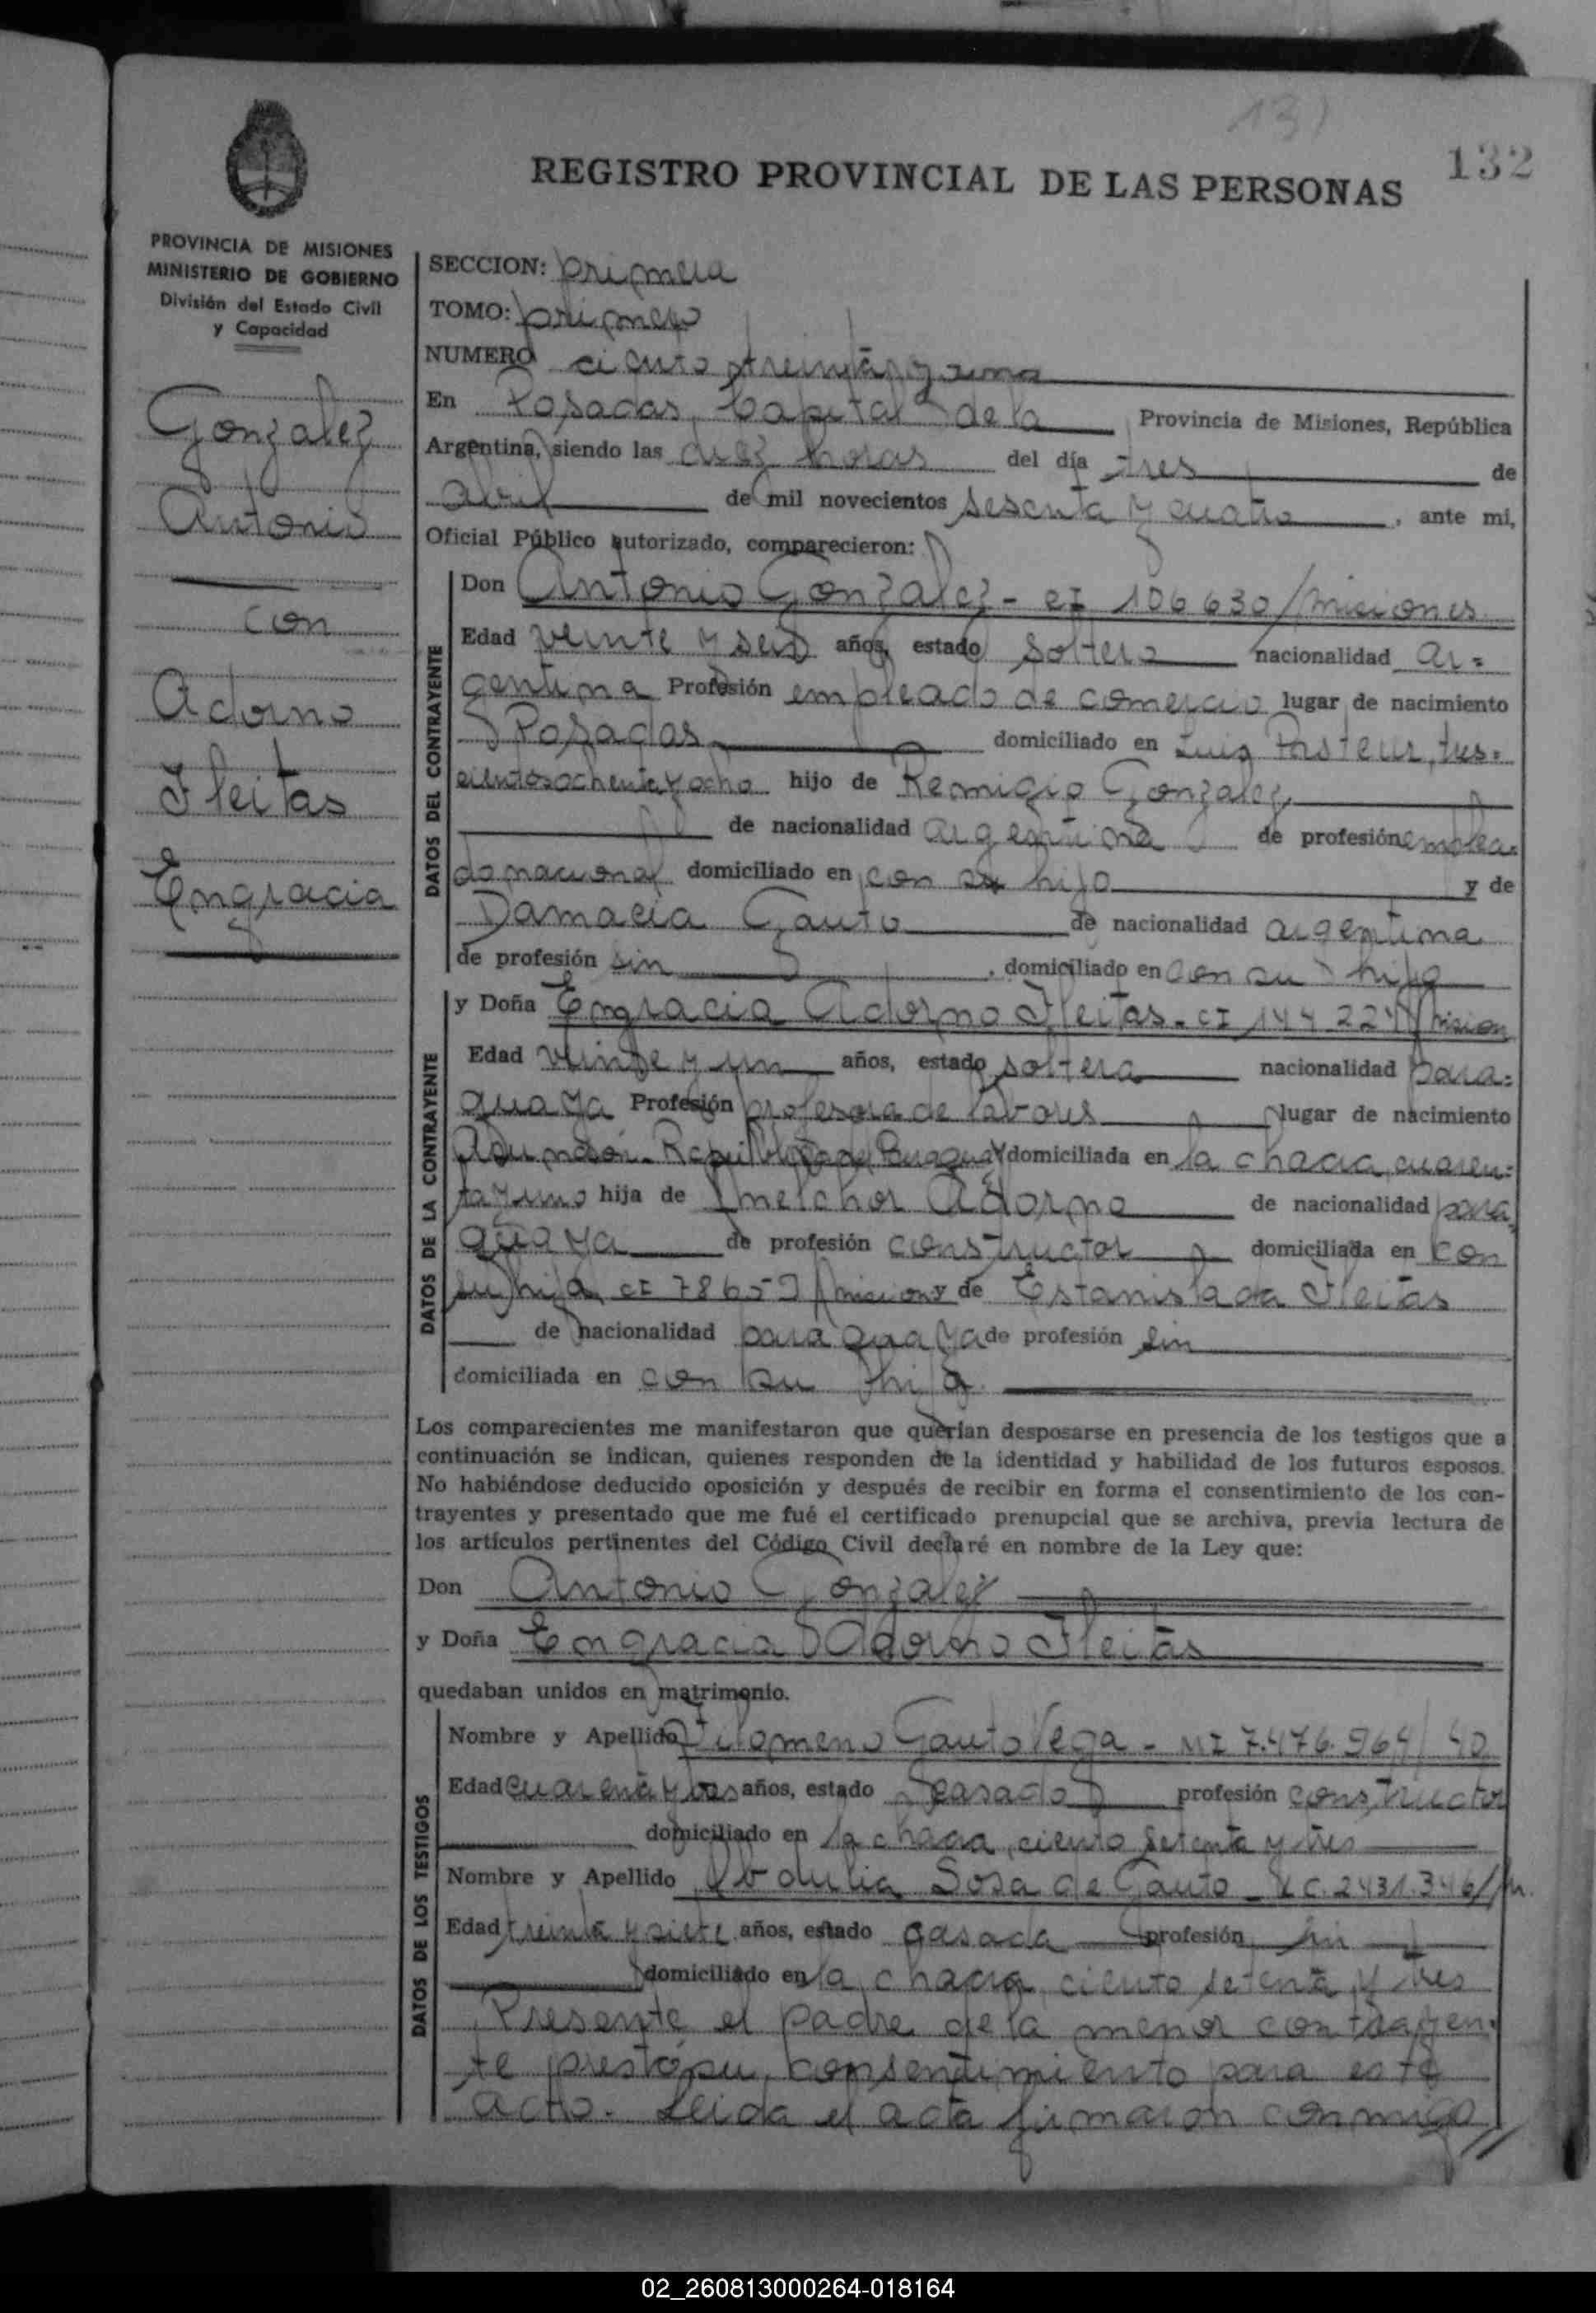 131
132
REGISTRO PROVINCIAL DE LAS PERSONAS
PROVINCIA DE MISIONES
MINISTERIO DE GOBIERNO
División del Estado Civil
y Capacidad
Gonzalez
Antonio
con
Adorno
Fleitas
Engracia
SECCION: primera
TOMO: primero
NUMERO ciento treinta y uno
En Posadas, Capital de la Provincia de Misiones, República
Argentina, siendo las diez horas del día tres de
abril de mil novecientos sesenta y cuatro, ante mi,
Oficial Público autorizado, comparecieron:
DATOS DEL CONTRAYENTE
Don Antonio Gonzalez - CI 106630/misiones
Edad veinte y seis años, estado soltero nacionalidad ar=
gentina Profesión empleado de comercio lugar de nacimiento
Posadas domiciliado en Luis Pasteur, tres=
cientos ochenta y ocho hijo de Remigio Gonzalez,
de nacionalidad argentina de profesión emplea=
do nacional domiciliado en con su hijo y de
Damacia Gauto de nacionalidad argentina
de profesión sin, domiciliado en con su hijo
DATOS DE LA CONTRAYENTE
y Doña Engracia Adorno Fleitas - CI 144 224/mision
Edad veinte y un años, estado soltera nacionalidad para=
guaya Profesión profesora de labores lugar de nacimiento
Asunción - República del Paraguay domiciliada en la chacra cuaren=
ta y uno hija de Melchor Adorno de nacionalidad para=
guaya de profesión constructor domiciliada en con
su hija CI 78659/mision y de Estanislada Fleitas
de nacionalidad paraguaya de profesión sin
domiciliada en con su hija.
Los comparecientes me manifestaron que querían desposarse en presencia de los testigos que a
continuación se indican, quienes responden de la identidad y habilidad de los futuros esposos.
No habiéndose deducido oposición y después de recibir en forma el consentimiento de los con-
trayentes y presentado que me fué el certificado prenupcial que se archiva, previa lectura de
los artículos pertinentes del Código Civil declaré en nombre de la Ley que:
Don Antonio Gonzalez
y Doña Engracia Adorno Fleitas
quedaban unidos en matrimonio.
DATOS DE LOS TESTIGOS
Nombre y Apellido Filomeno Gauto Vega - MI 7.476.964/40
Edad cuarenta y tres años, estado casado profesión constructor
domiciliado en la chacra ciento setenta y tres
Nombre y Apellido Obdulia Sosa de Gauto - LC. 2431.346/m.
Edad treinta y siete años, estado casada profesión sin
domiciliado en la chacra ciento setenta y tres
Presente el padre de la menor contrayen=
te prestó su consentimiento para este
acto. Leida el acta firmaron conmigo //
02_260813000264-018164